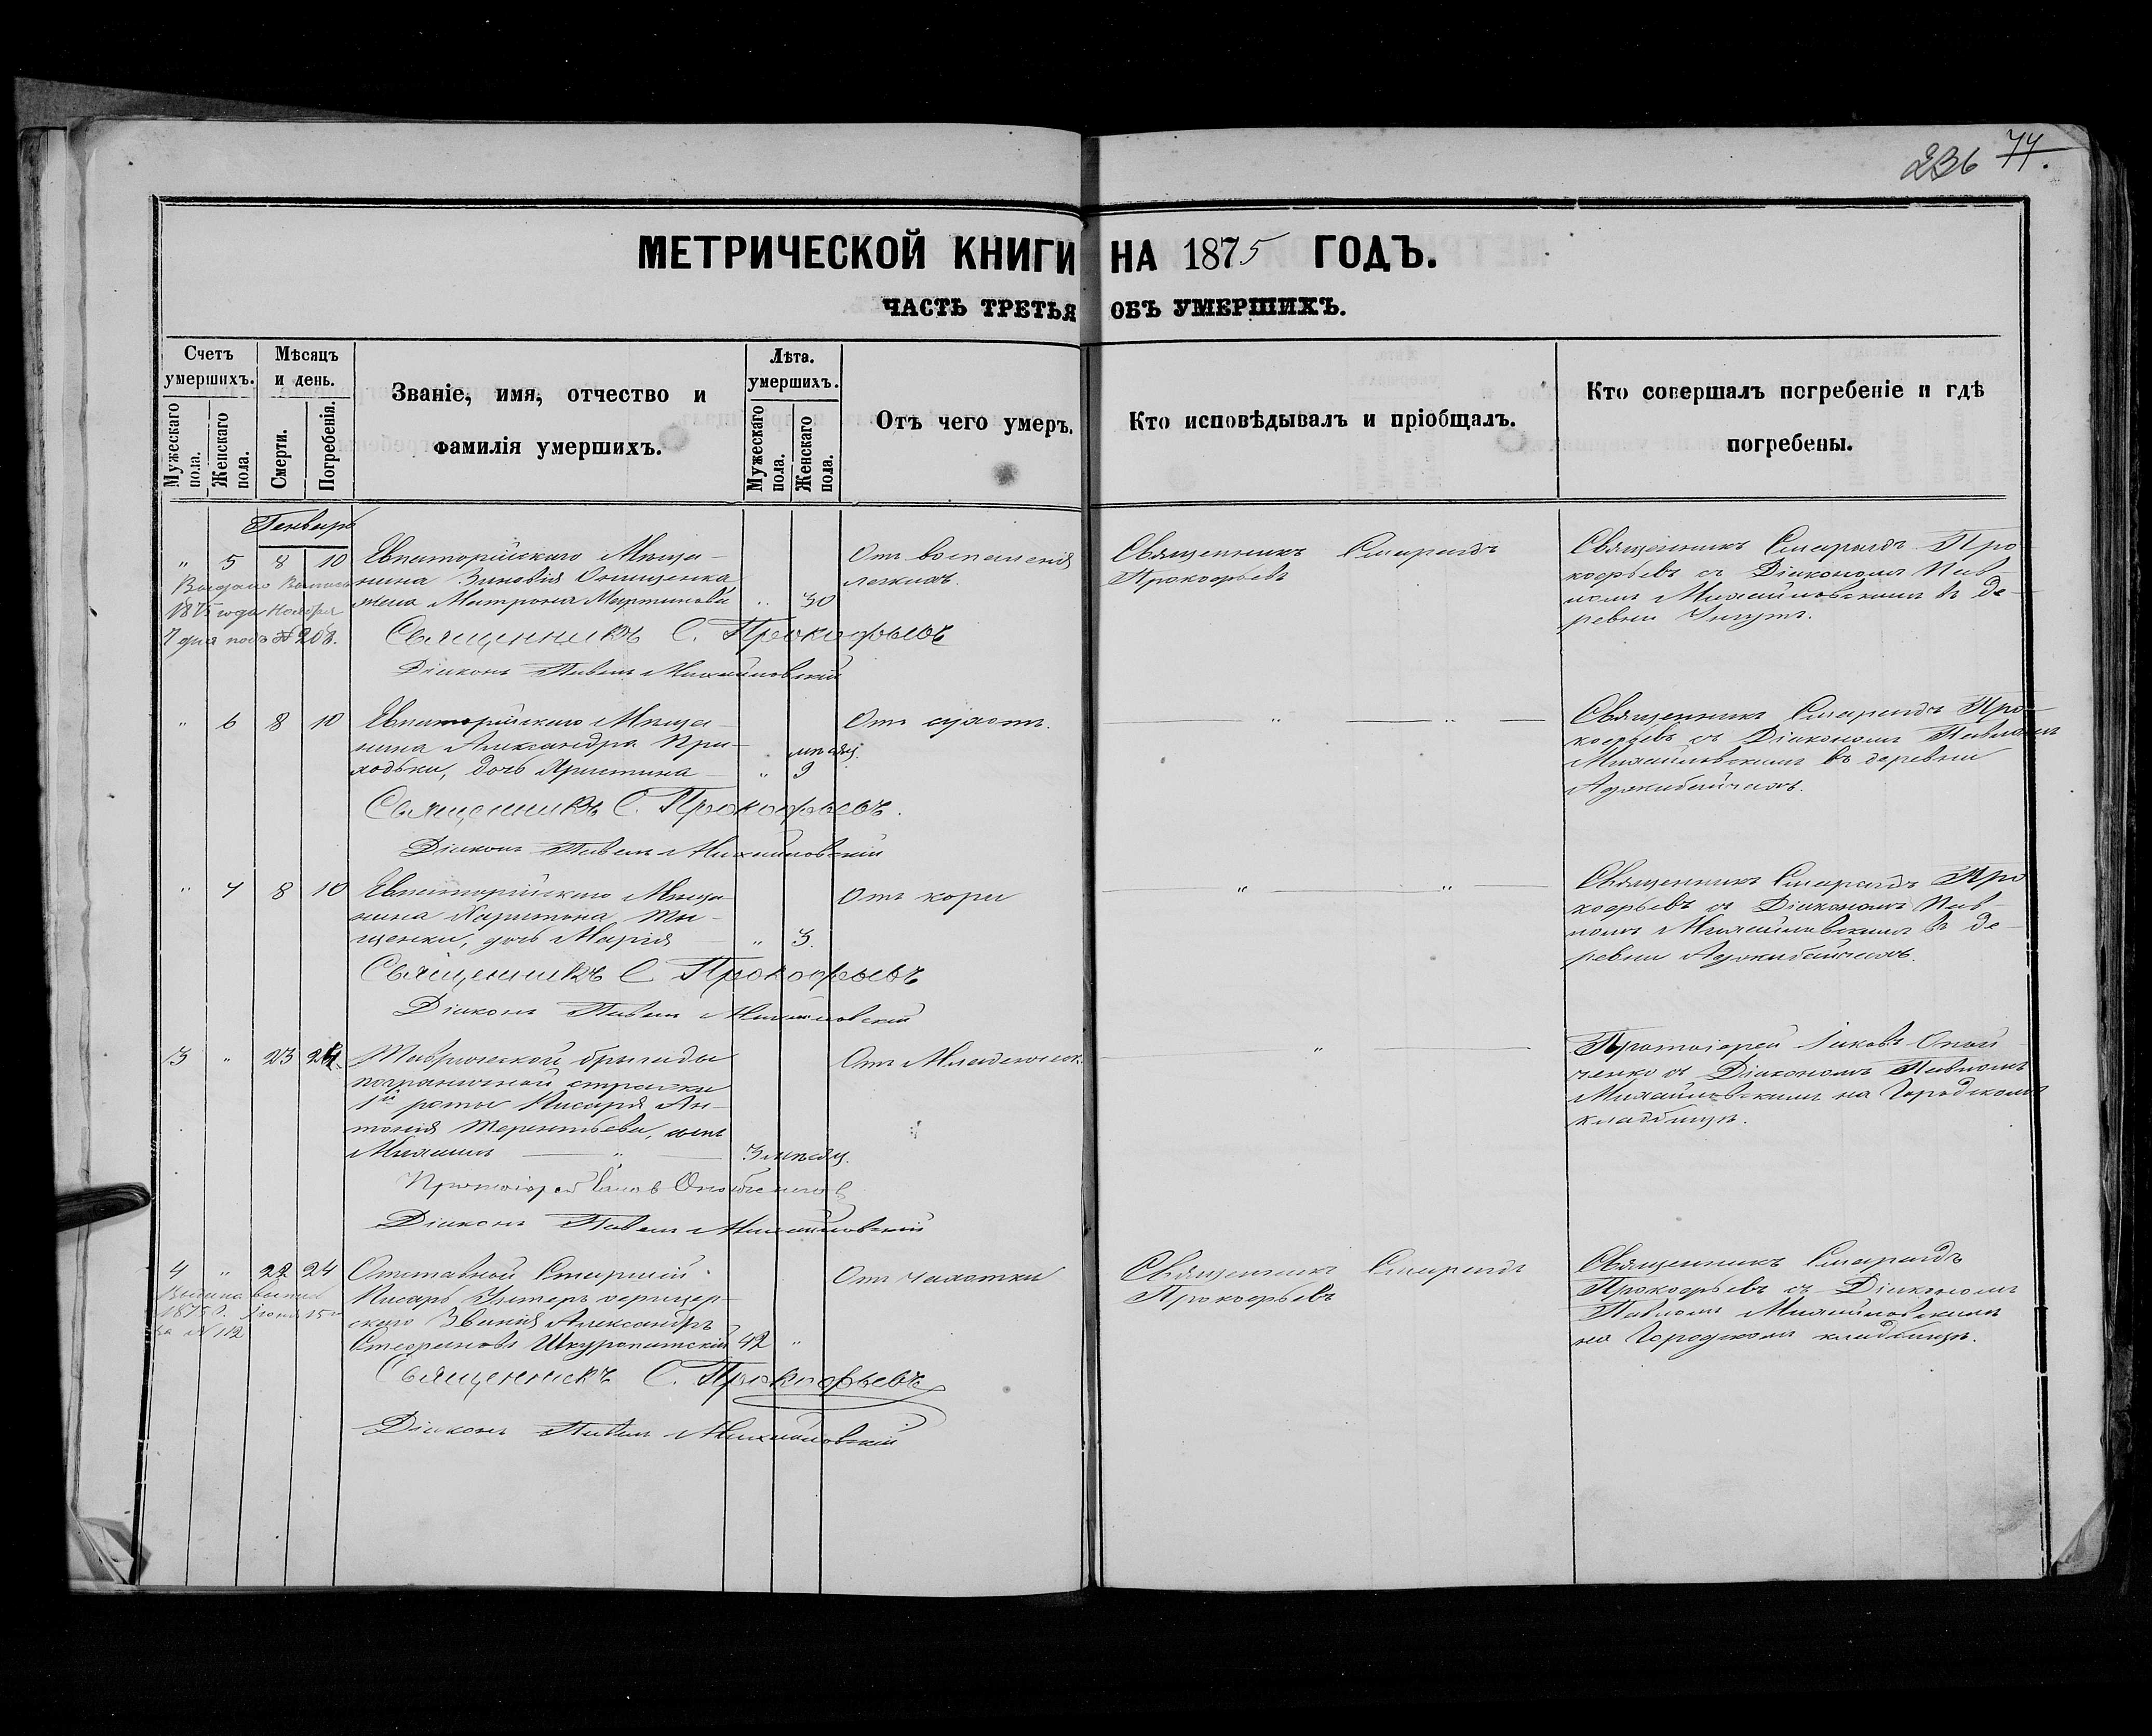 236 77.
МЕТРИЧЕСКОЙ КНИГИ НА 1875 ГОДЪ.
ЧАСТЬ ТРЕТЬЯ ОБЪ УМЕРШИХЪ.
Счетъ умершихъ.
Мужескаго пола.
Женскаго пола.
Мѣсяцъ и день.
Смерти.
Погребенія.
Званіе, имя, отчество и
фамилія умершихъ.
Лѣта. умершихъ.
Мужескаго пола.
Женскаго пола.
Отъ чего умеръ.
Кто исповѣдывалъ и пріобщалъ.
Кто совершалъ погребеніе и гдѣ
погребены.
Генварь
" 5 8 10
Выдано
1875 года Ноября
7 дня подъ № 208.
Евпаторійскаго Мѣща-
нина Зиновія Онищенка
жена Матрона Мартинова " 30
Отъ воспаленія
легкихъ.
Священникъ Смарагдъ
Прокофьевъ
Священникъ Смарагдъ Про
кофьевъ съ Діакономъ Пав-
ломъ Михайловскимъ въ де-
ревни
Священникъ С. Прокофьевъ
Діаконъ Павелъ Михайловскій
" 6 8 10
Евпаторійскаго Мѣща-
нина Александра При-
ходьки, дочь Христина " 9 мѣсяц.
Отъ сухотъ.
" "
Священникъ Смарагдъ Про-
кофьевъ съ Діакономъ Павломъ
Михайловскимъ въ деревни
Аджибайчихъ.
Священникъ С. Прокофьевъ.
Діаконъ Павелъ Михайловскій
" 7 8 10
Евпаторійскаго Мѣща-
нина Харитона Ти-
щенки, дочь Марія " 3.
Отъ кори
" "
Священникъ Смарагдъ Про
кофьевъ съ Діакономъ Пав-
ломъ Михайловскимъ въ де-
ревни Аджибайчихъ.
Священникъ С Прокофьевъ
Діаконъ Павелъ Михайловскій
3 " 23 24
Таврической бригады
пограничной стражи
1й роты Писаря Ан-
тонія Терентьева, сынъ
Михаилъ " 3 мѣсяц.
Отъ Младенческ.
"
Протоіерей Іаковъ
съ Діакономъ Павломъ
Михайловскимъ на Городскомъ
кладбищѣ.
Протоіерей Іаковъ
Діаконъ Павелъ Михайловскій
4 " 22 24
1875 г. Іюня 15
за № 112
Отставной Старшій
Писарь Унтеръ офицер-
скаго Званія Александръ
Стефановъ Шкуропатскій 42 "
Отъ чахотки
Священникъ Смарагдъ
Прокофьевъ
Священникъ Смарагдъ
Прокофьевъ съ Діакономъ
Павломъ Михайловскимъ
на Городскомъ кладбищѣ.
Священникъ С. Прокофьевъ
Діаконъ Павелъ Михайловскій